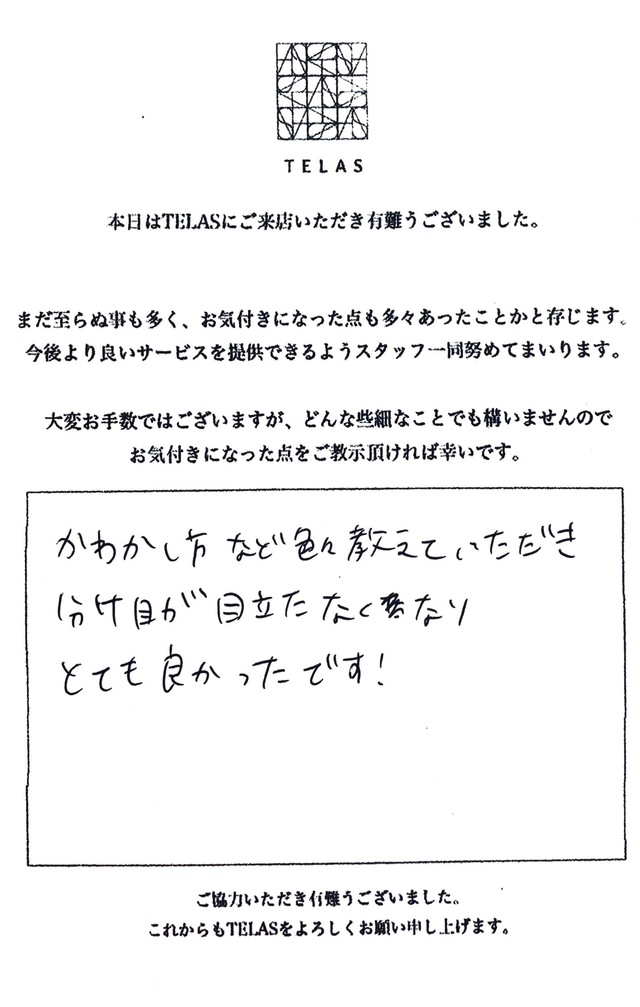 TELAS
本日はTELASにご来店いただき有難うございました。
まだ至らぬ事も多く、お気付きになった点も多々あったことかと存じます。
今後より良いサービスを提供できるようスタッフ一同努めてまいります。
大変お手数ではございますが、どんな些細なことでも構いませんので
お気付きになった点をご教示頂ければ幸いです。
かわかし方など色々教えていただき
分け目が目立たなくなり
とても良かったです!
ご協力いただき有難うございました。
これからもTELASをよろしくお願い申し上げます。